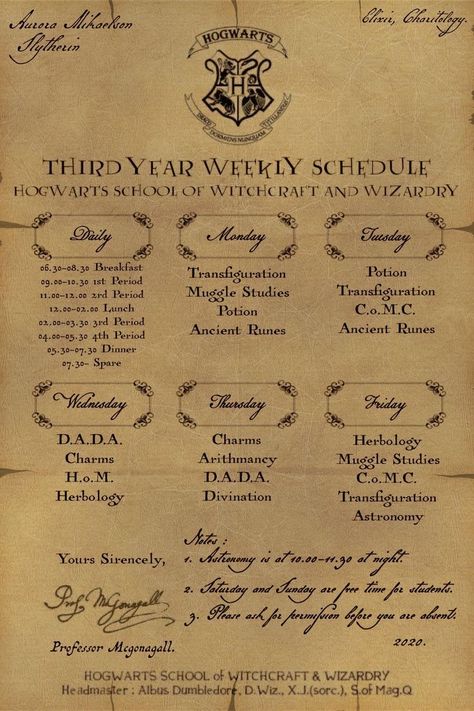 Aurora Mikaelson
Slytherin
Elixir, Charitology.
HOGWARTS
H
DRACO DORMIENS NUNQUAM TITILLANDUS
THIRD YEAR WEEKLY SCHEDULE
HOGWARTS SCHOOL OF WITCHCRAFT AND WIZARDRY
Daily
06.30-08.30 Breakfast
09.00-10.30 1st Period
11.00-12.00 2nd Period
12.00-02.00 Lunch
02.00-03.30 3rd Period
04.00-05.30 4th Period
05.30-07.30 Dinner
07.30- Spare
Monday
Transfiguration
Muggle Studies
Potion
Ancient Runes
Tuesday
Potion
Transfiguration
C.o.M.C.
Ancient Runes
Wednesday
D.A.D.A.
Charms
H.o.M.
Herbology
Thursday
Charms
Arithmancy
D.A.D.A.
Divination
Friday
Herbology
Muggle Studies
C.o.M.C.
Transfiguration
Astronomy
Notes :
1. Astronomy is at 10.00-11.30 at night.
2. Saturday and Sunday are free time for students.
3. Please ask for permission before you are absent.
Yours Sirencely,
Prof. McGonagall
Professor Mcgonagall.
2020.
HOGWARTS SCHOOL of WITCHCRAFT & WIZARDRY
Headmaster : Albus Dumbledore, D.Wiz., X.J.(sorc.), S.of Mag.Q